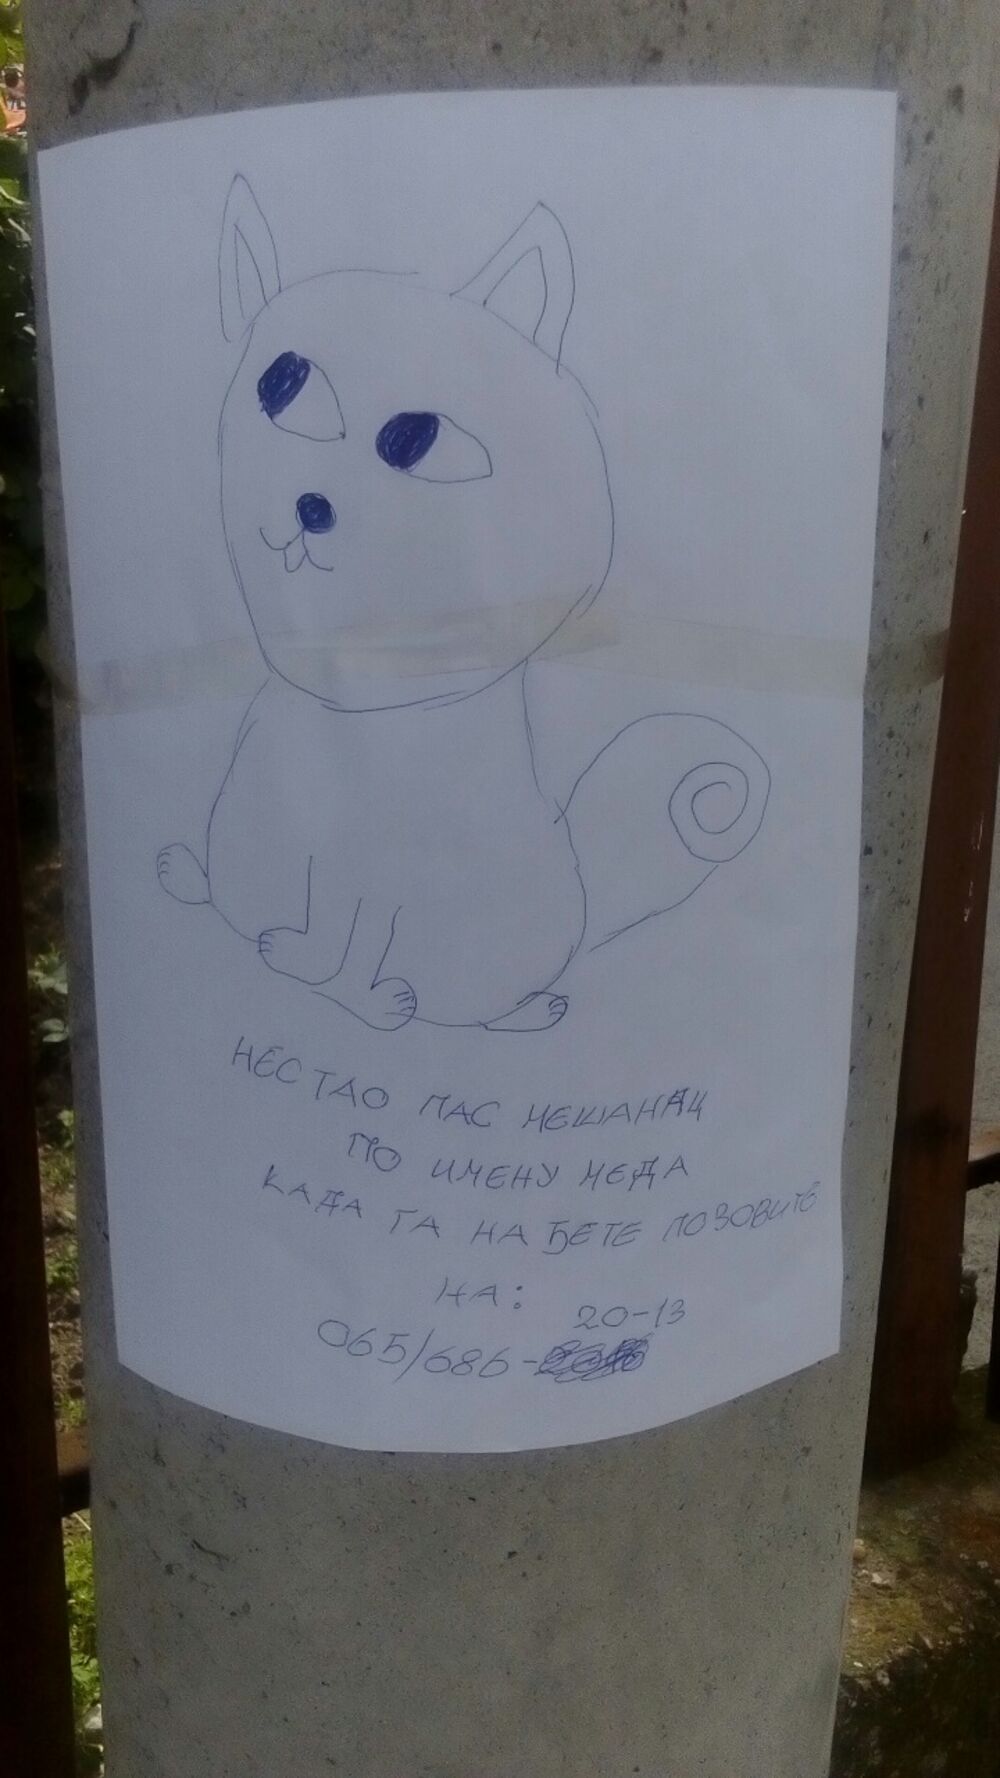 НЕСТАО ПАС МЕШАНАЦ
ПО ИМЕНУ МЕДА
КАДА ГА НАЂЕТЕ ПОЗОВИТЕ
НА:
065/686-20-13